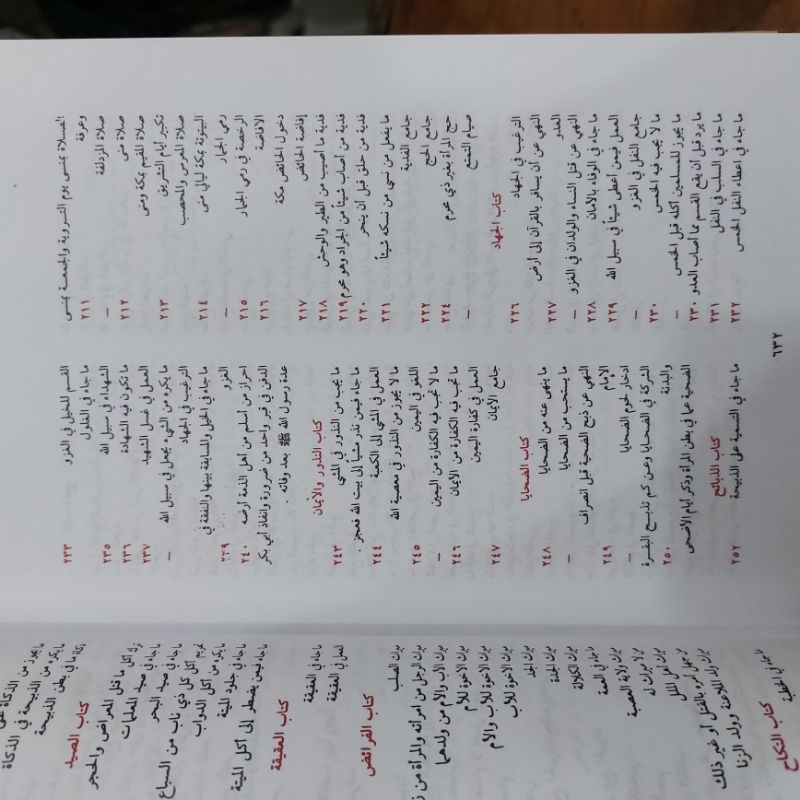 الصلاة بمنى يوم التروية والجمعة بمنى
وعرفة ٢١١
صلاة المزدلفة –
صلاة منى ٢١٢
صلاة المقيم بمكة ومنى
تكبير أيام التشريق ٢١٣
صلاة المعرس والمحصب
البيتوتة بمكة ليالي منى ٢١٤
رمي الجمار –
الرخصة في رمي الجمار ٢١٥
الافاضة ٢١٦
دخول الحائض مكة
إفاضة الحائض ٢١٧
فدية ما أصيب من الطير والوحش ٢١٨
فدية من أصاب شيئاً من الجراد وهو محرم ٢١٩
فدية من حلق قبل أن ينحر ٢٢٠
ما يفعل من نسي من نسكه شيئاً ٢٢١
جامع الفدية
جامع الحج ٢٢٢
حج المرأة بغير ذي محرم ٢٢٤
صيام التمتع –
كتاب الجهاد
الترغيب في الجهاد ٢٢٦
النهي عن أن يسافر بالقرآن إلى أرض
العدو ٢٢٧
النهي عن قتل النساء والولدان في الغزو –
ما جاء في الوفاء بالأمان ٢٢٨
العمل فيمن أعطى شيئاً في سبيل الله ٢٢٩
جامع النفل في الغزو –
ما لا يجب فيه الخمس ٢٣٠
ما يجوز للمسلمين أكله قبل الخمس –
ما يرد قبل أن يقع القسم مما أصاب العدو ٢٣٠
ما جاء في السلب في النفل ٢٣١
ما جاء في اعطاء النفل الخمس ٢٣٢
القسم للخيل في الغزو ٢٣٣
ما جاء في الغلول
الشهداء في سبيل الله ٢٣٥
ما تكون فيه الشهادة ٢٣٦
العمل في غسل الشهيد ٢٣٧
ما يكره من الشيء يجعل في سبيل الله –
الترغيب في الجهاد
ما جاء في الخيل والمسابقة بينها والنفقة في
الغزو ٢٣٩
احراز من أسلم من أهل الذمة أرضه ٢٤٠
الدفن في قبر واحد من ضرورة وانفاذ أبي بكر
عدة رسول الله ﷺ بعد وفاته .
كتاب النذور والأيمان
ما يجب من النذور في المشي ٢٤٣
ما جاء فيمن نذر مشياً إلى بيت الله فعجز .
العمل في المشي إلى الكعبة ٢٤٤
ما لا يجوز من النذور في معصية الله
اللغو في اليمين ٢٤٥
ما لا تجب فيه الكفارة من اليمين –
ما تجب فيه الكفارة من الأيمان ٢٤٦
العمل في كفارة اليمين
جامع الأيمان ٢٤٧
كتاب الضحايا
ما ينهى عنه من الضحايا ٢٤٨
ما يستحب من الضحايا –
النهي عن ذبح الضحية قبل انصراف
الإمام ٢٤٩
ادخار لحوم الضحايا –
الشركة في الضحايا وعن كم تذبح البقرة
والبدنة ٢٥٠
الضحية عما في بطن المرأة وذكر أيام الأضحى
كتاب الذبائح
ما جاء في التسمية على الذبيحة ٢٥٢
٦٣٢
ما يجوز من الذكاة على
ما يكره من الذبيحة في الذكاة
ذكاة ما في بطن الذبيحة
كتاب الصيد
ترك أكل ما قتل المعراض والحجر
ما جاء في صيد المعلمات
ما جاء في صيد البحر
تحريم أكل كل ذي ناب من السباع
ما يكره من أكل الدواب
ما جاء في جلود الميتة
ما جاء فيمن يضطر إلى أكل الميتة
كتاب العقيقة
ما جاء في العقيقة
العمل في العقيقة
كتاب الفرائض
ميراث الصلب
ميراث الرجل من امرأته والمرأة من
ميراث الأب والأم من ولدهما
ميراث الاخوة للأم
ميراث الاخوة للأب والأم
ميراث الاخوة للأب
ميراث الجد
ميراث الجدة
ميراث الكلالة
ما جاء في العمة
ميراث ولاية العصبة
من لا ميراث له
ميراث أهل الملل
من جهل أمره بالقتل أو غير ذلك
ميراث ولد الملاعنة وولد الزنا
كتاب النكاح
ما جاء في الخطبة